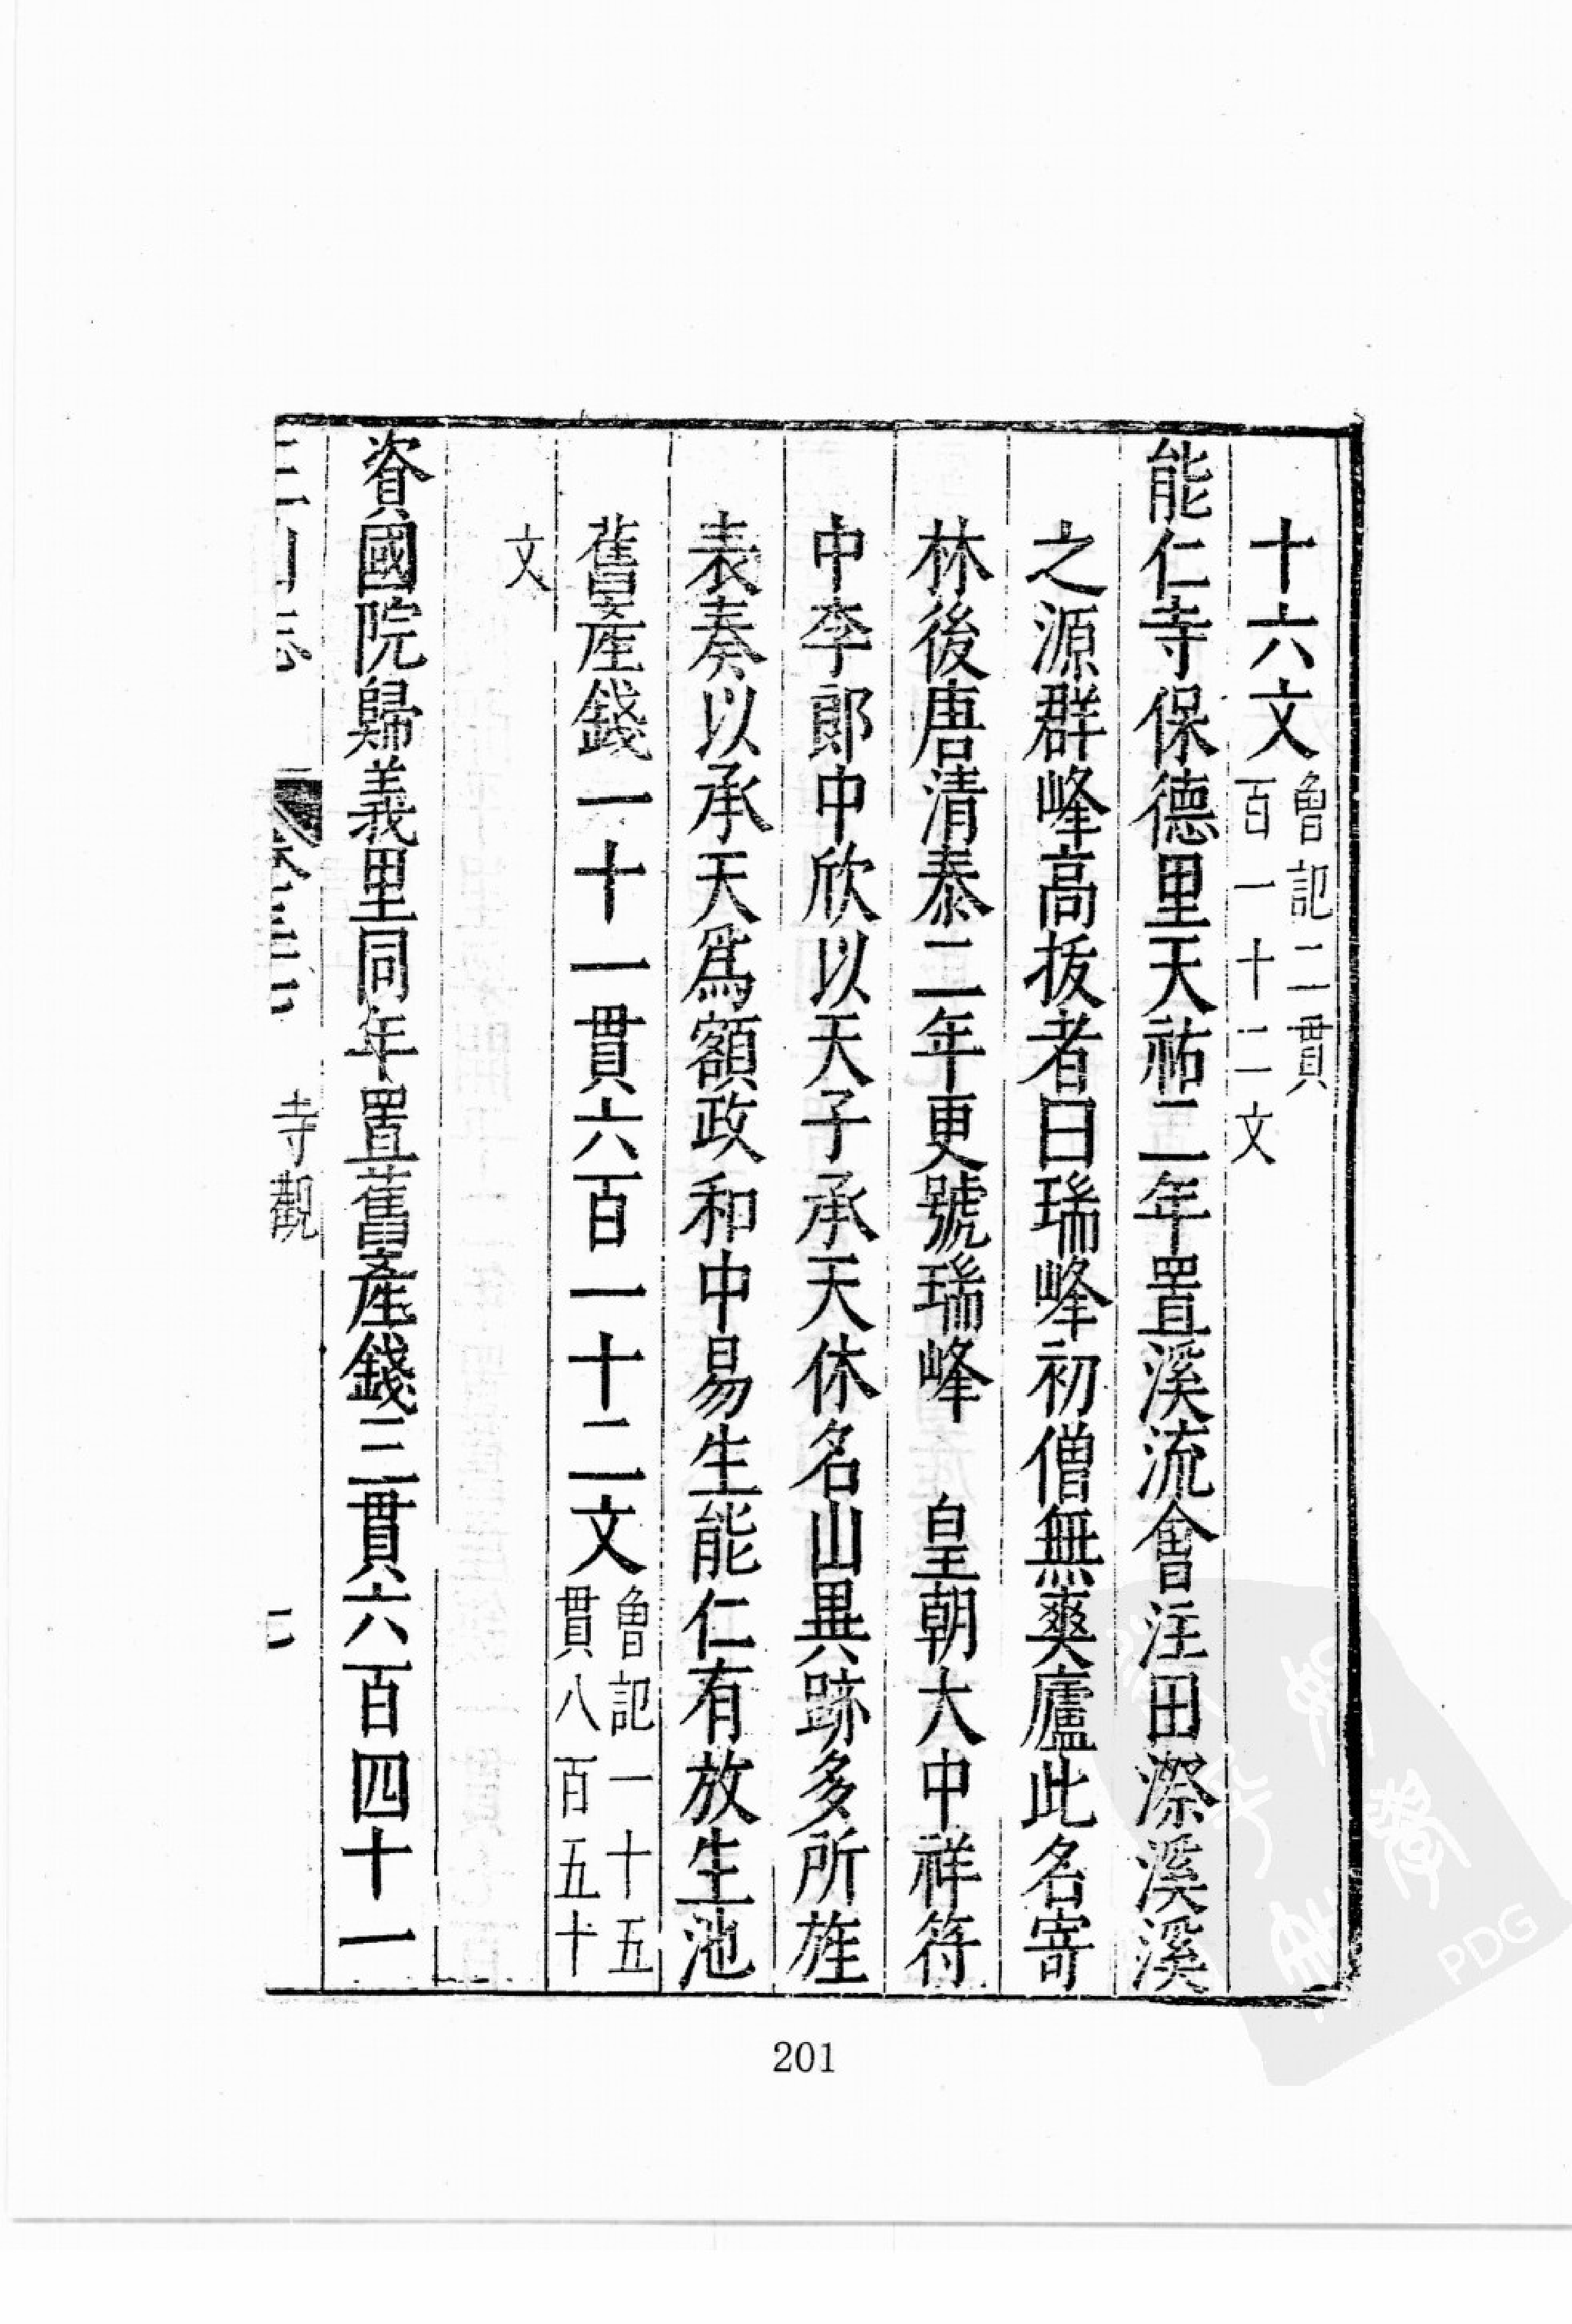 十六文魯記二貫百一十二文
能仁寺保德里天祐二年置溪流會注田際溪溪
之源群峰高拔者曰瑞峰初僧無奭廬此名寄
林後唐清泰二年更號瑞峰　皇朝大中祥符
中李郎中欣以天子承天休名山異跡多所旌
表奏以承天爲額政和中易生能仁有放生池
舊產錢一十一貫六百一十二文魯記一十五貫八百五十
文
資國院歸義里同年置舊產錢三貫六百四十一
寺觀
201
PDG